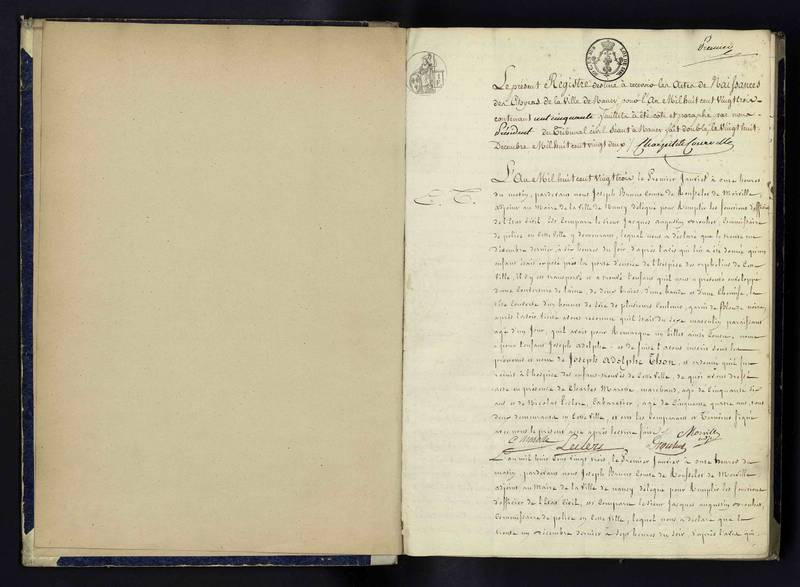 Premier
Le présent Régistre destiné à recevoir les Actes de Naissances
des Citoyens de la Ville de Nancy, pour l'An Mil huit cent Vingt trois
contenant cent cinquante feuillets à été coté et paraphé par nous
Président du Tribunal civil séant à Nancy fait double, le Vingt huit
Decembre Mil huit cent vingt deux
E. T.
L'An Mil huit cent Vingt trois le Premier Janvier à onze heures
du matin, pardevant nous Joseph Comte de Morville,
adjoint au Maire de la Ville de Nancy délégué pour Remplir les fonctions d'officier
de l'Etat Civil, Est Comparu le sieur Jacques augustin Commissaire
de police en Cette Ville y demeurant, lequel nous a déclaré que le trente un
décembre dernier, à six heures du soir, d'après l'avis qui lui a été donné qu'un
enfant était exposé près la porte d'entrée de l'hospice des orphelins de Cette
Ville, il s'y est transporté et a trouvé l'enfant qu'il nous a présenté enveloppé
d'une Couverture de laine, de deux braies, d'une bande et d'une Chemise, la
tête Couverte d'un bonnet de soie de plusieurs Couleurs, garni de noire,
après l'avoir visité avons reconnu qu'il était du sexe masculin paraissant
agé d'un Jour, qu'il avait pour Remarque un billet ainsi Conçu, nom
pour l'enfant Joseph adolphe et de suite l'avons inscrit sous les
prénoms et nom de Joseph Adolphe Thon, et ordonné qu'il fut
à l'hospice des enfans trouvés de Cette Ville, de quoi avons dressé
acte en présence de Charles Marotte, marchand, agé de Cinquante six
ans et de Nicolas Leclerc, Cabaretier, agé de Cinquante quatre ans, tous
deux demeurant en Cette Ville, et ont les Comparant et Témoins signé
avec nous le présent acte après lecture faite
C Marotte Leclerc Morville
L'an mil huit Cent vingt trois, le Premier Janvier à onze heures du
matin, pardevant nous Joseph Comte de Morville
adjoint au Maire de la Ville de nancy délégué pour Remplir les fonctions
d'officier de l'Etat Civil, est Comparu le sieur Jacques augustin
Commissaire de police en Cette Ville, lequel nous a déclaré que le
trente un décembre dernier à sept heures du soir, d'après l'avis qui